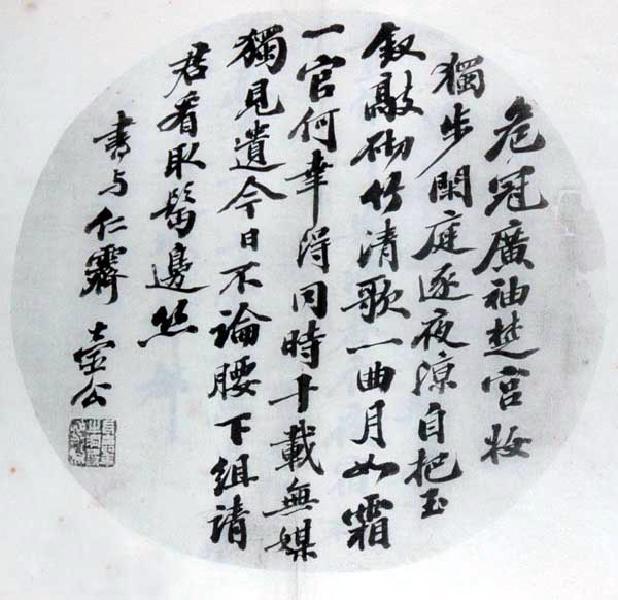 危冠廣袖楚宮妝
獨步閑庭逐夜涼自把玉
釵敲砌竹清歌一曲月如霜
一官何幸得同時十載無媒
獨見遺今日不論腰下組請
君看取鬢邊絲
書与仁霽 壺公